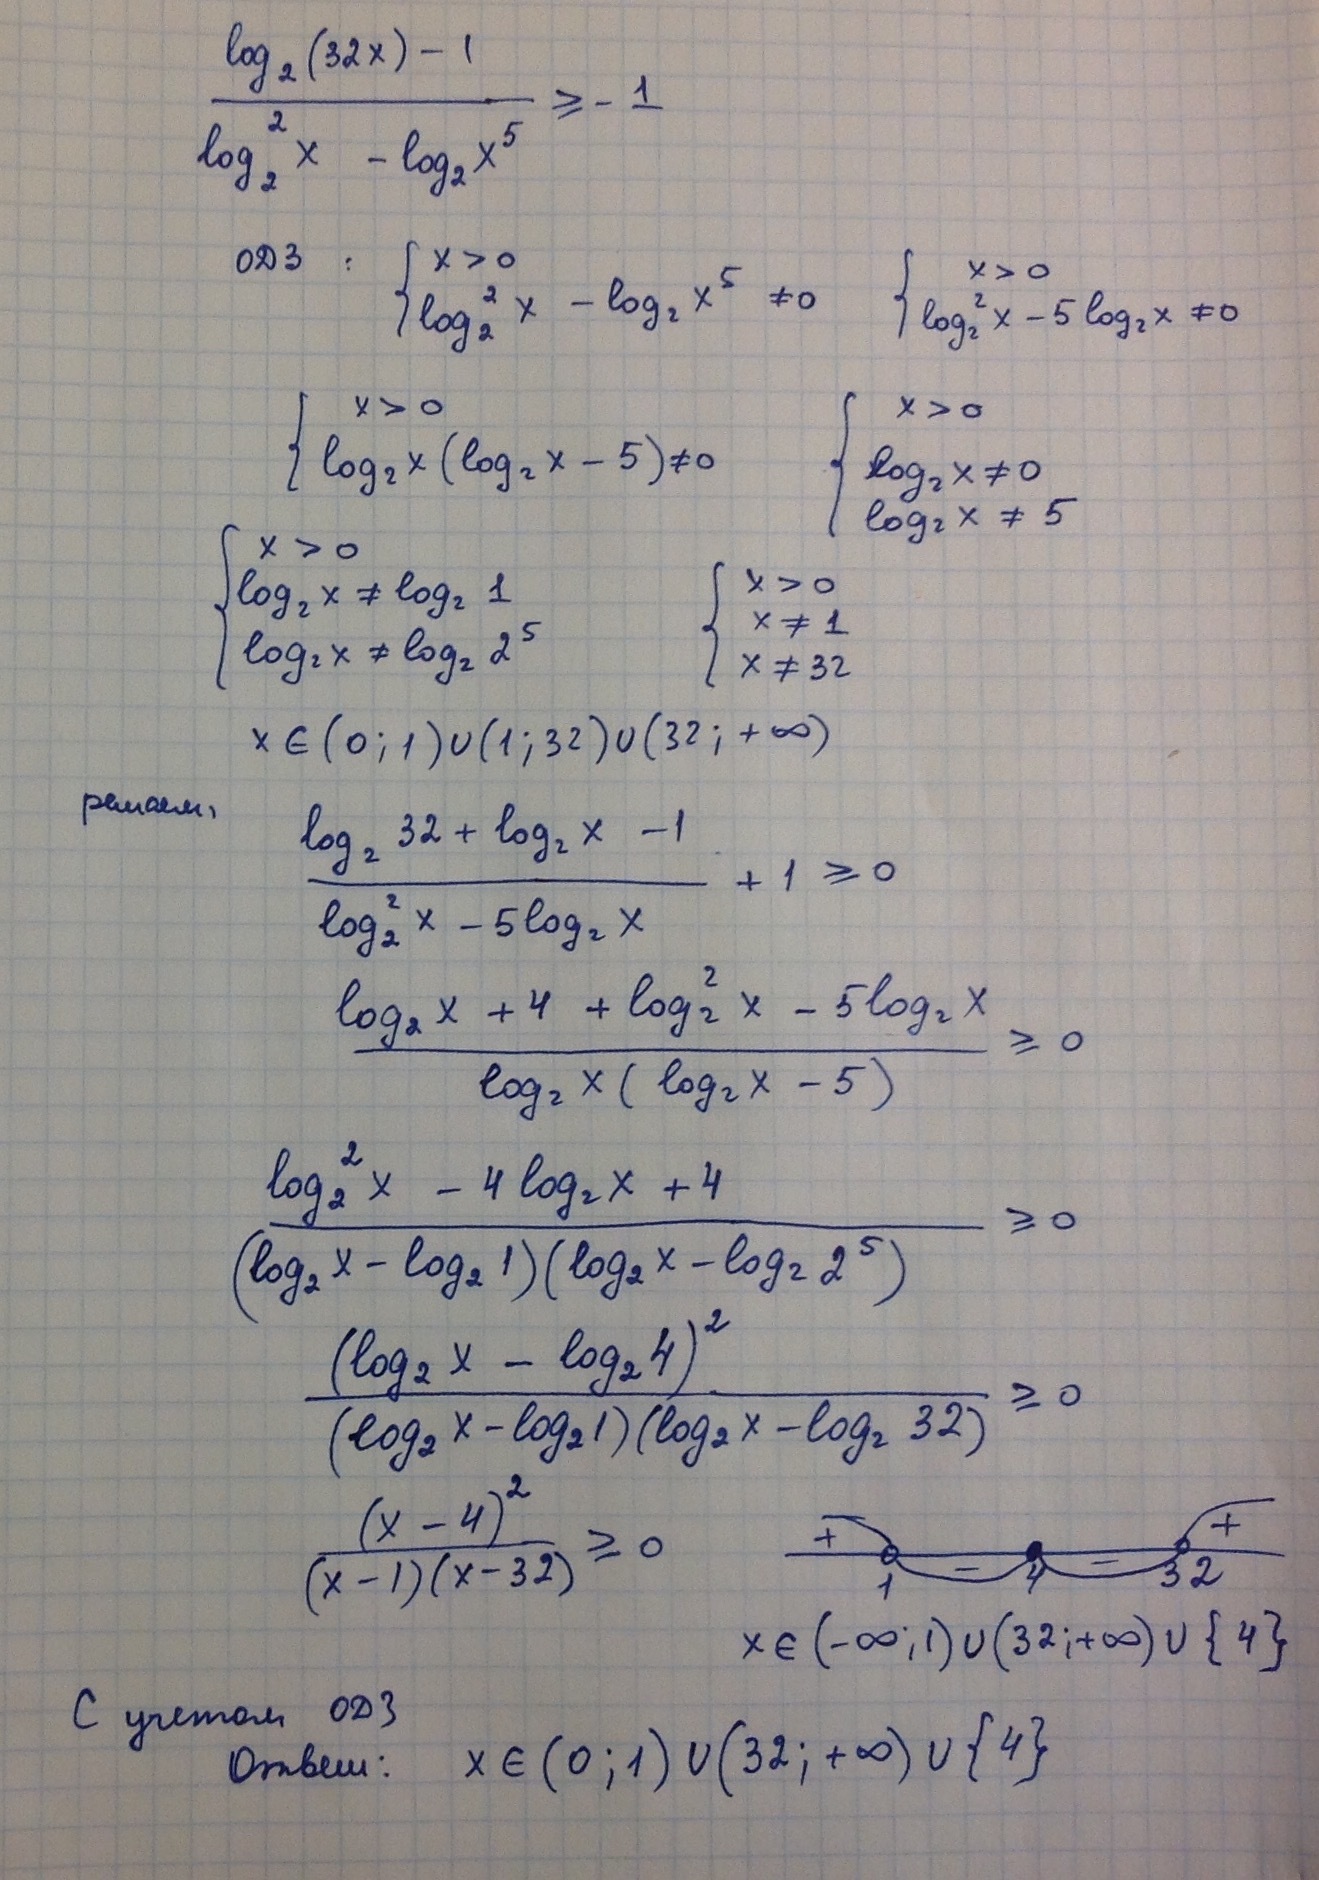 (log₂(32x) - 1) / (log₂²x - log₂x⁵) ≥ - 1
ОДЗ : { x > 0 ; log₂²x - log₂x⁵ ≠ 0 { x > 0 ; log₂²x - 5log₂x ≠ 0
{ x > 0 ; log₂x (log₂x - 5) ≠ 0 { x > 0 ; log₂x ≠ 0 ; log₂x ≠ 5
{ x > 0 ; log₂x ≠ log₂1 ; log₂x ≠ log₂2⁵ { x > 0 ; x ≠ 1 ; x ≠ 32
x ∈ (0; 1) ∪ (1; 32) ∪ (32; + ∞)
решаем,
(log₂32 + log₂x - 1) / (log₂²x - 5log₂x) + 1 ≥ 0
(log₂x + 4 + log₂²x - 5log₂x) / (log₂x (log₂x - 5)) ≥ 0
(log₂²x - 4log₂x + 4) / ((log₂x - log₂1)(log₂x - log₂2⁵)) ≥ 0
(log₂x - log₂4)² / ((log₂x - log₂1)(log₂x - log₂32)) ≥ 0
(x - 4)² / ((x - 1)(x - 32)) ≥ 0
+ - - +
1 4 32
x ∈ (-∞; 1) ∪ (32; +∞) ∪ {4}
С учетом ОДЗ
Ответ: x ∈ (0; 1) ∪ (32; +∞) ∪ {4}